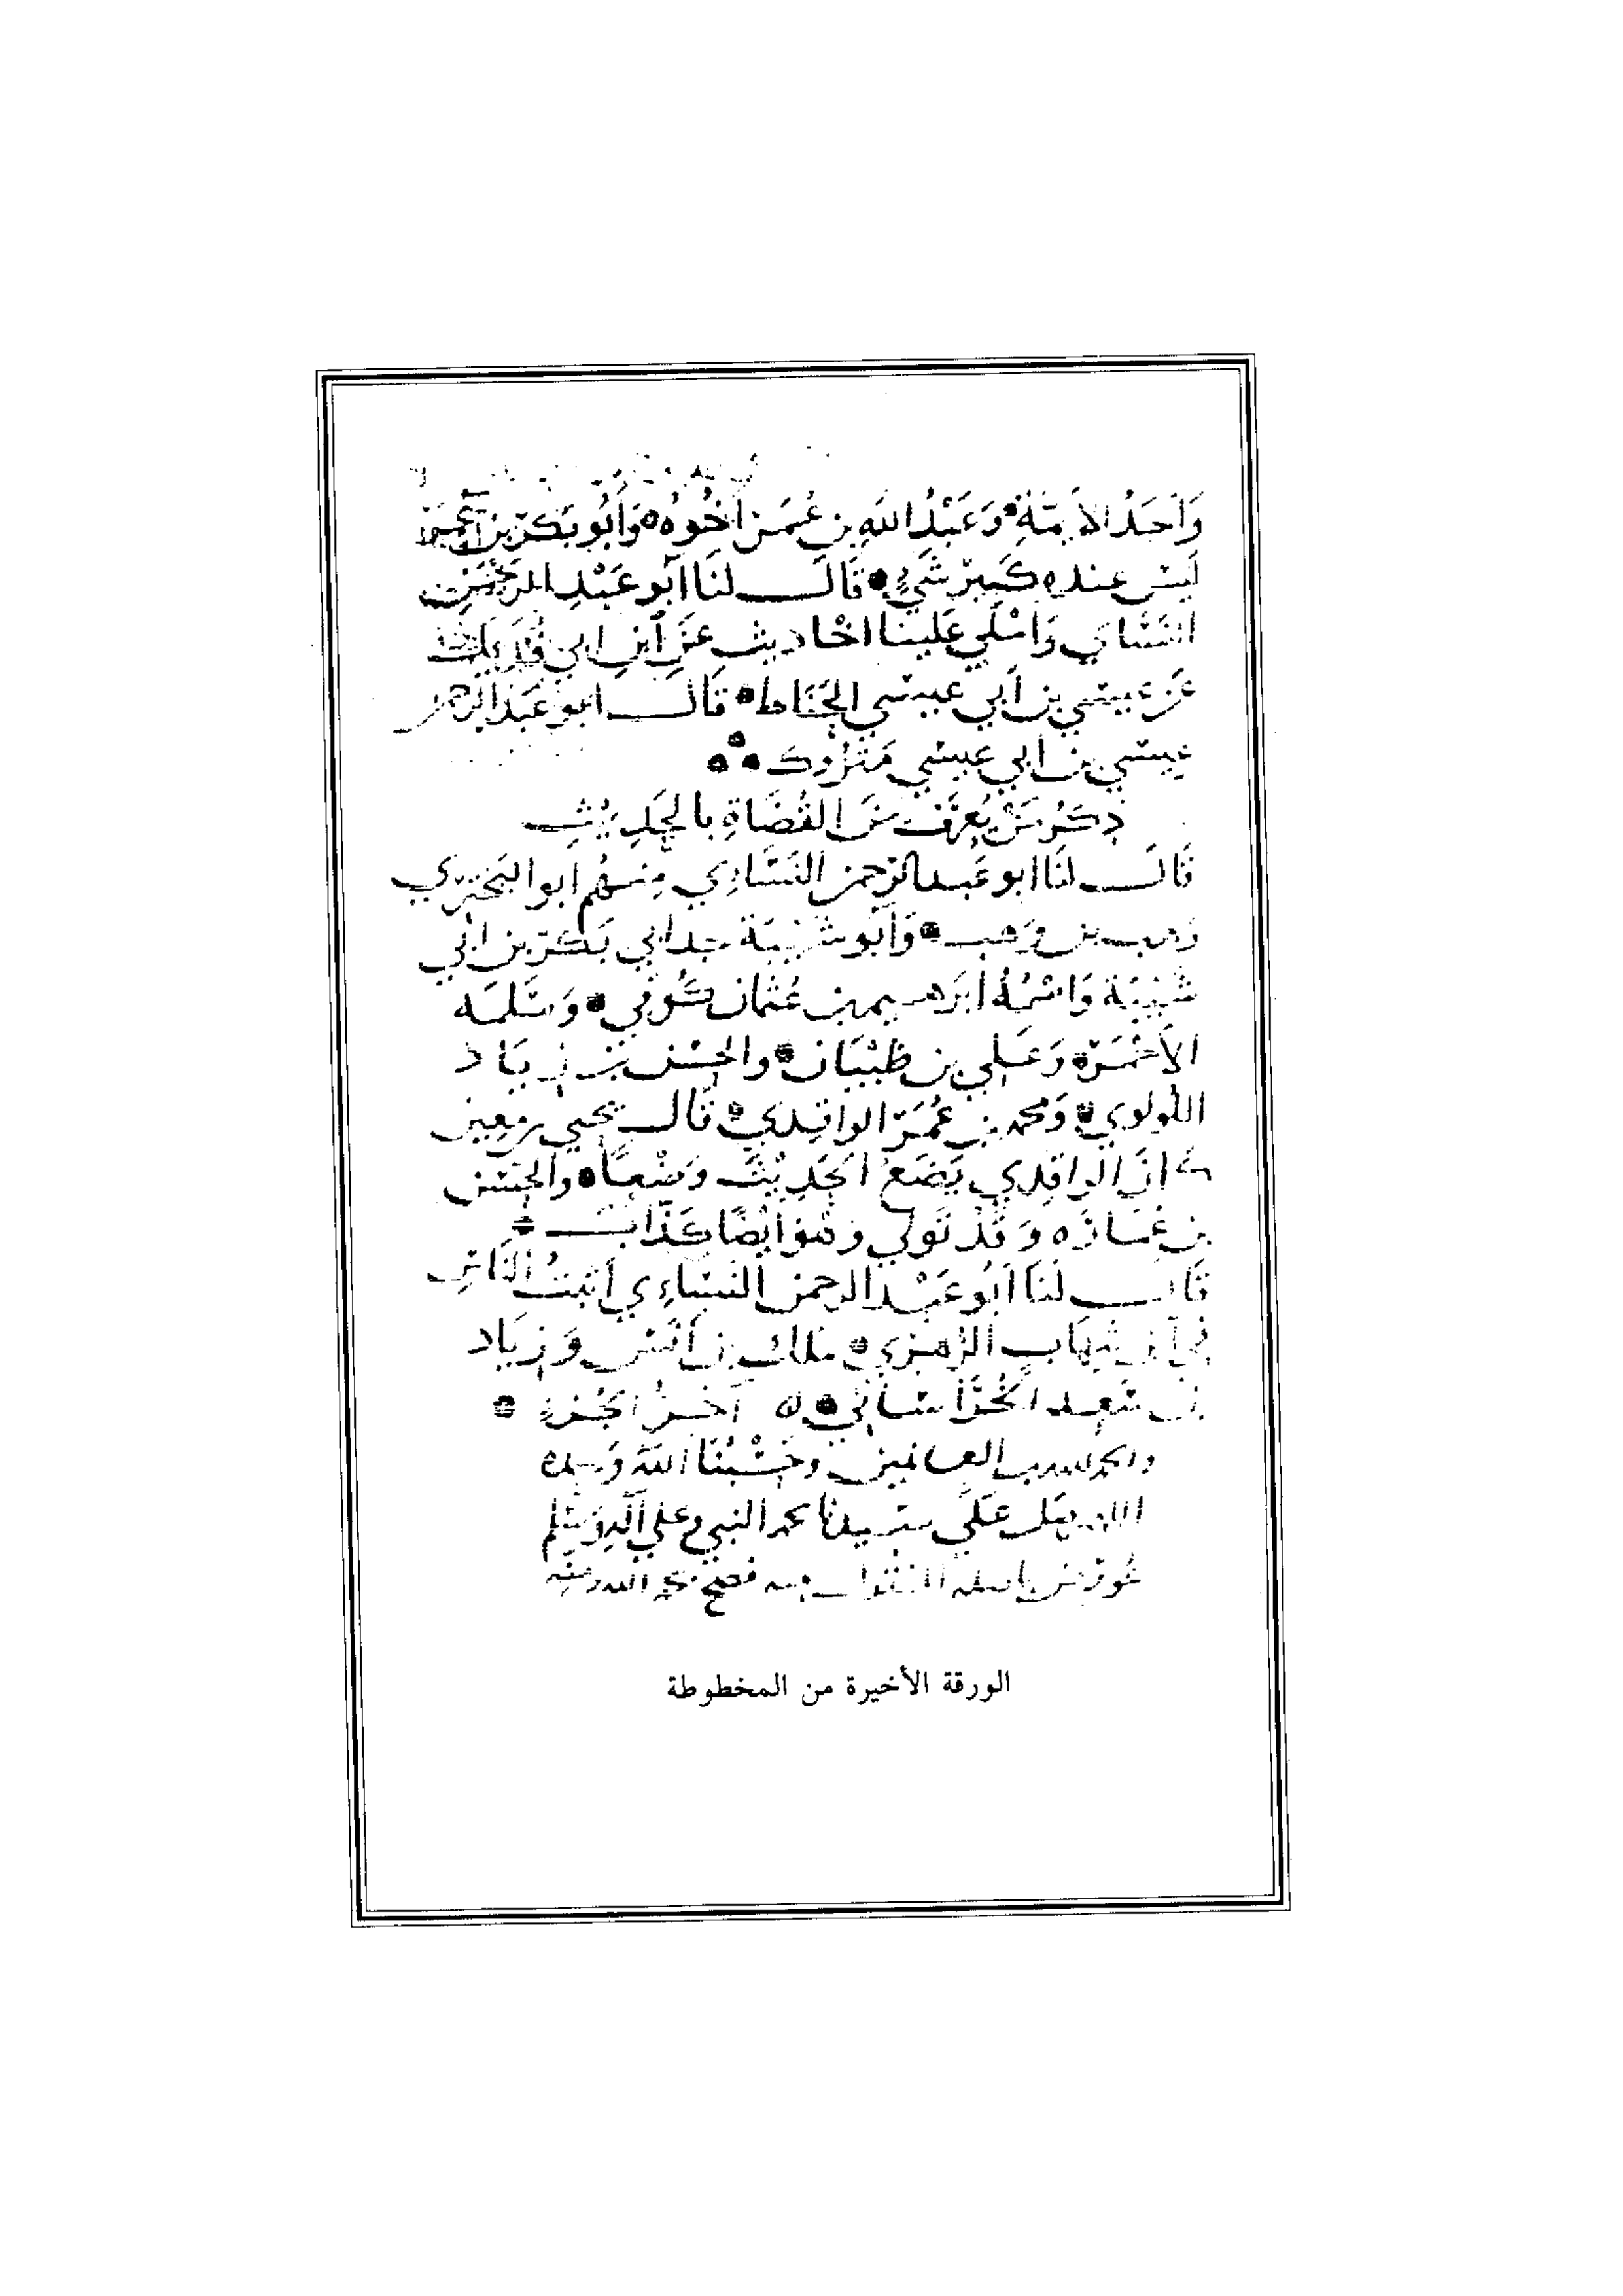 وَاَحَدُ الاَيمَّةِ وَعَبْدُ اللهِ بن عُمَر اَخُوهُ وَاَبُو بَكرِ بن
ليسَ عنده كَبيرُ شَيْءٍ قَالَ لنَا اَبو عَبْدِ الرَّحمَنِ
النسَاي وَامْلَي عَلينا احَاديث عَن اَبن ابي فُدَيك
عَن عيسَي بن اَبي عيسَي الحنَاط قَالَ ابو عَبد الرحمن
عيسَي بن ابي عيسَي مَترُوك
ذِكرُ مَنْ يُعرَف مِنَ القُضَاةِ بالحَدِيثِ
قَالَ لنَا ابو عَبد الرَّحمن النسَاءِي مِنهُم ابو البَختري
وَهب بن وَهب وَاَبو شَيبَة جد ابي بَكر بن ابي
شَيبَة وَاسْمُهُ ابرَهيم بن عُثمان كُوفي وَسَلمَه
الاَحمَر وَعَلي بن ظَبْيَان والحسَن بن زيَاد
اللولوي وَمحمد بن عُمَر الواقِدي قَالَ يحيي بن معِين
كانَ الواقِدي يَضَعُ الحَدِيثَ وَضْعًا والحسَن
بن عُمَارَه وَقد تَوفي وَهُوَ ايضًا كَذَّابٌ
قَالَ لنَا اَبُو عَبْد الرحمن النسَاءِي اَثبَتُ النَّاسِ
في ابن شِهَابٍ الزُّهري ملك بن اَنَس وَزيَاد
بن سَعِد الخُرَاسَاني اَخرُ الجُزءِ
والحمد لله رب العالمين وحَسْبُنَا اللهُ وَحده
اللهم صَل عَلَي سيدنَا محمد النبي وعلي آلهِ وَسَلم
عُورض باصله المنقول منه فصح بحمد الله ومنه
الورقة الأخيرة من المخطوطة